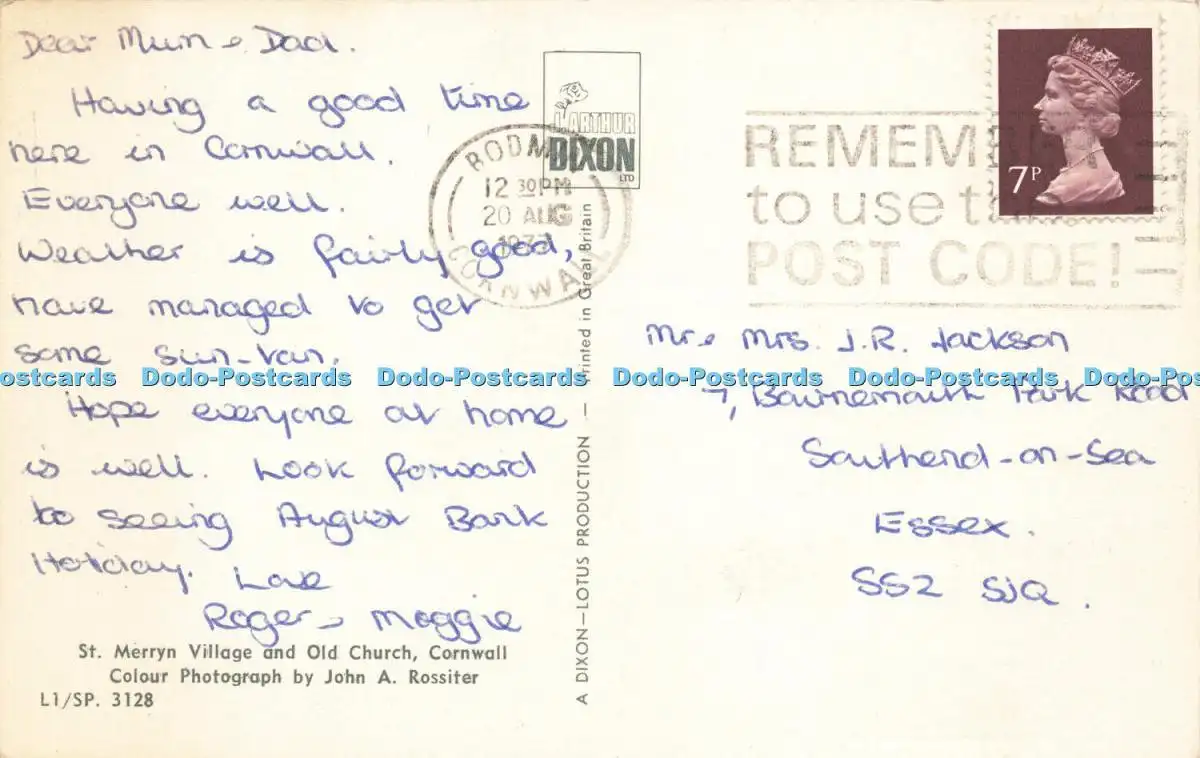 Dear Mum & Dad.
Having a good time
here in Cornwall.
Everyone well.
Weather is fairly good,
have managed to get
some sun-tan.
Hope everyone at home
is well. Look forward
to seeing August Bank
Holiday. Love
Roger & Maggie
St. Merryn Village and Old Church, Cornwall
Colour Photograph by John A. Rossiter
L1/SP. 3128
J. ARTHUR
DIXON
LTD
12 30PM
20 AUG
CORNWALL
A DIXON–LOTUS PRODUCTION — Printed in Great Britain
REMEMBER
to use the
POST CODE!
7P
Mr & Mrs. J.R. Jackson
7, Bournemouth Park Road
Southend-on-Sea
Essex.
SS2 5JQ.
ostcards Dodo-Postcards Dodo-Postcards Dodo-Postcards Dodo-Postcards Dodo-Post